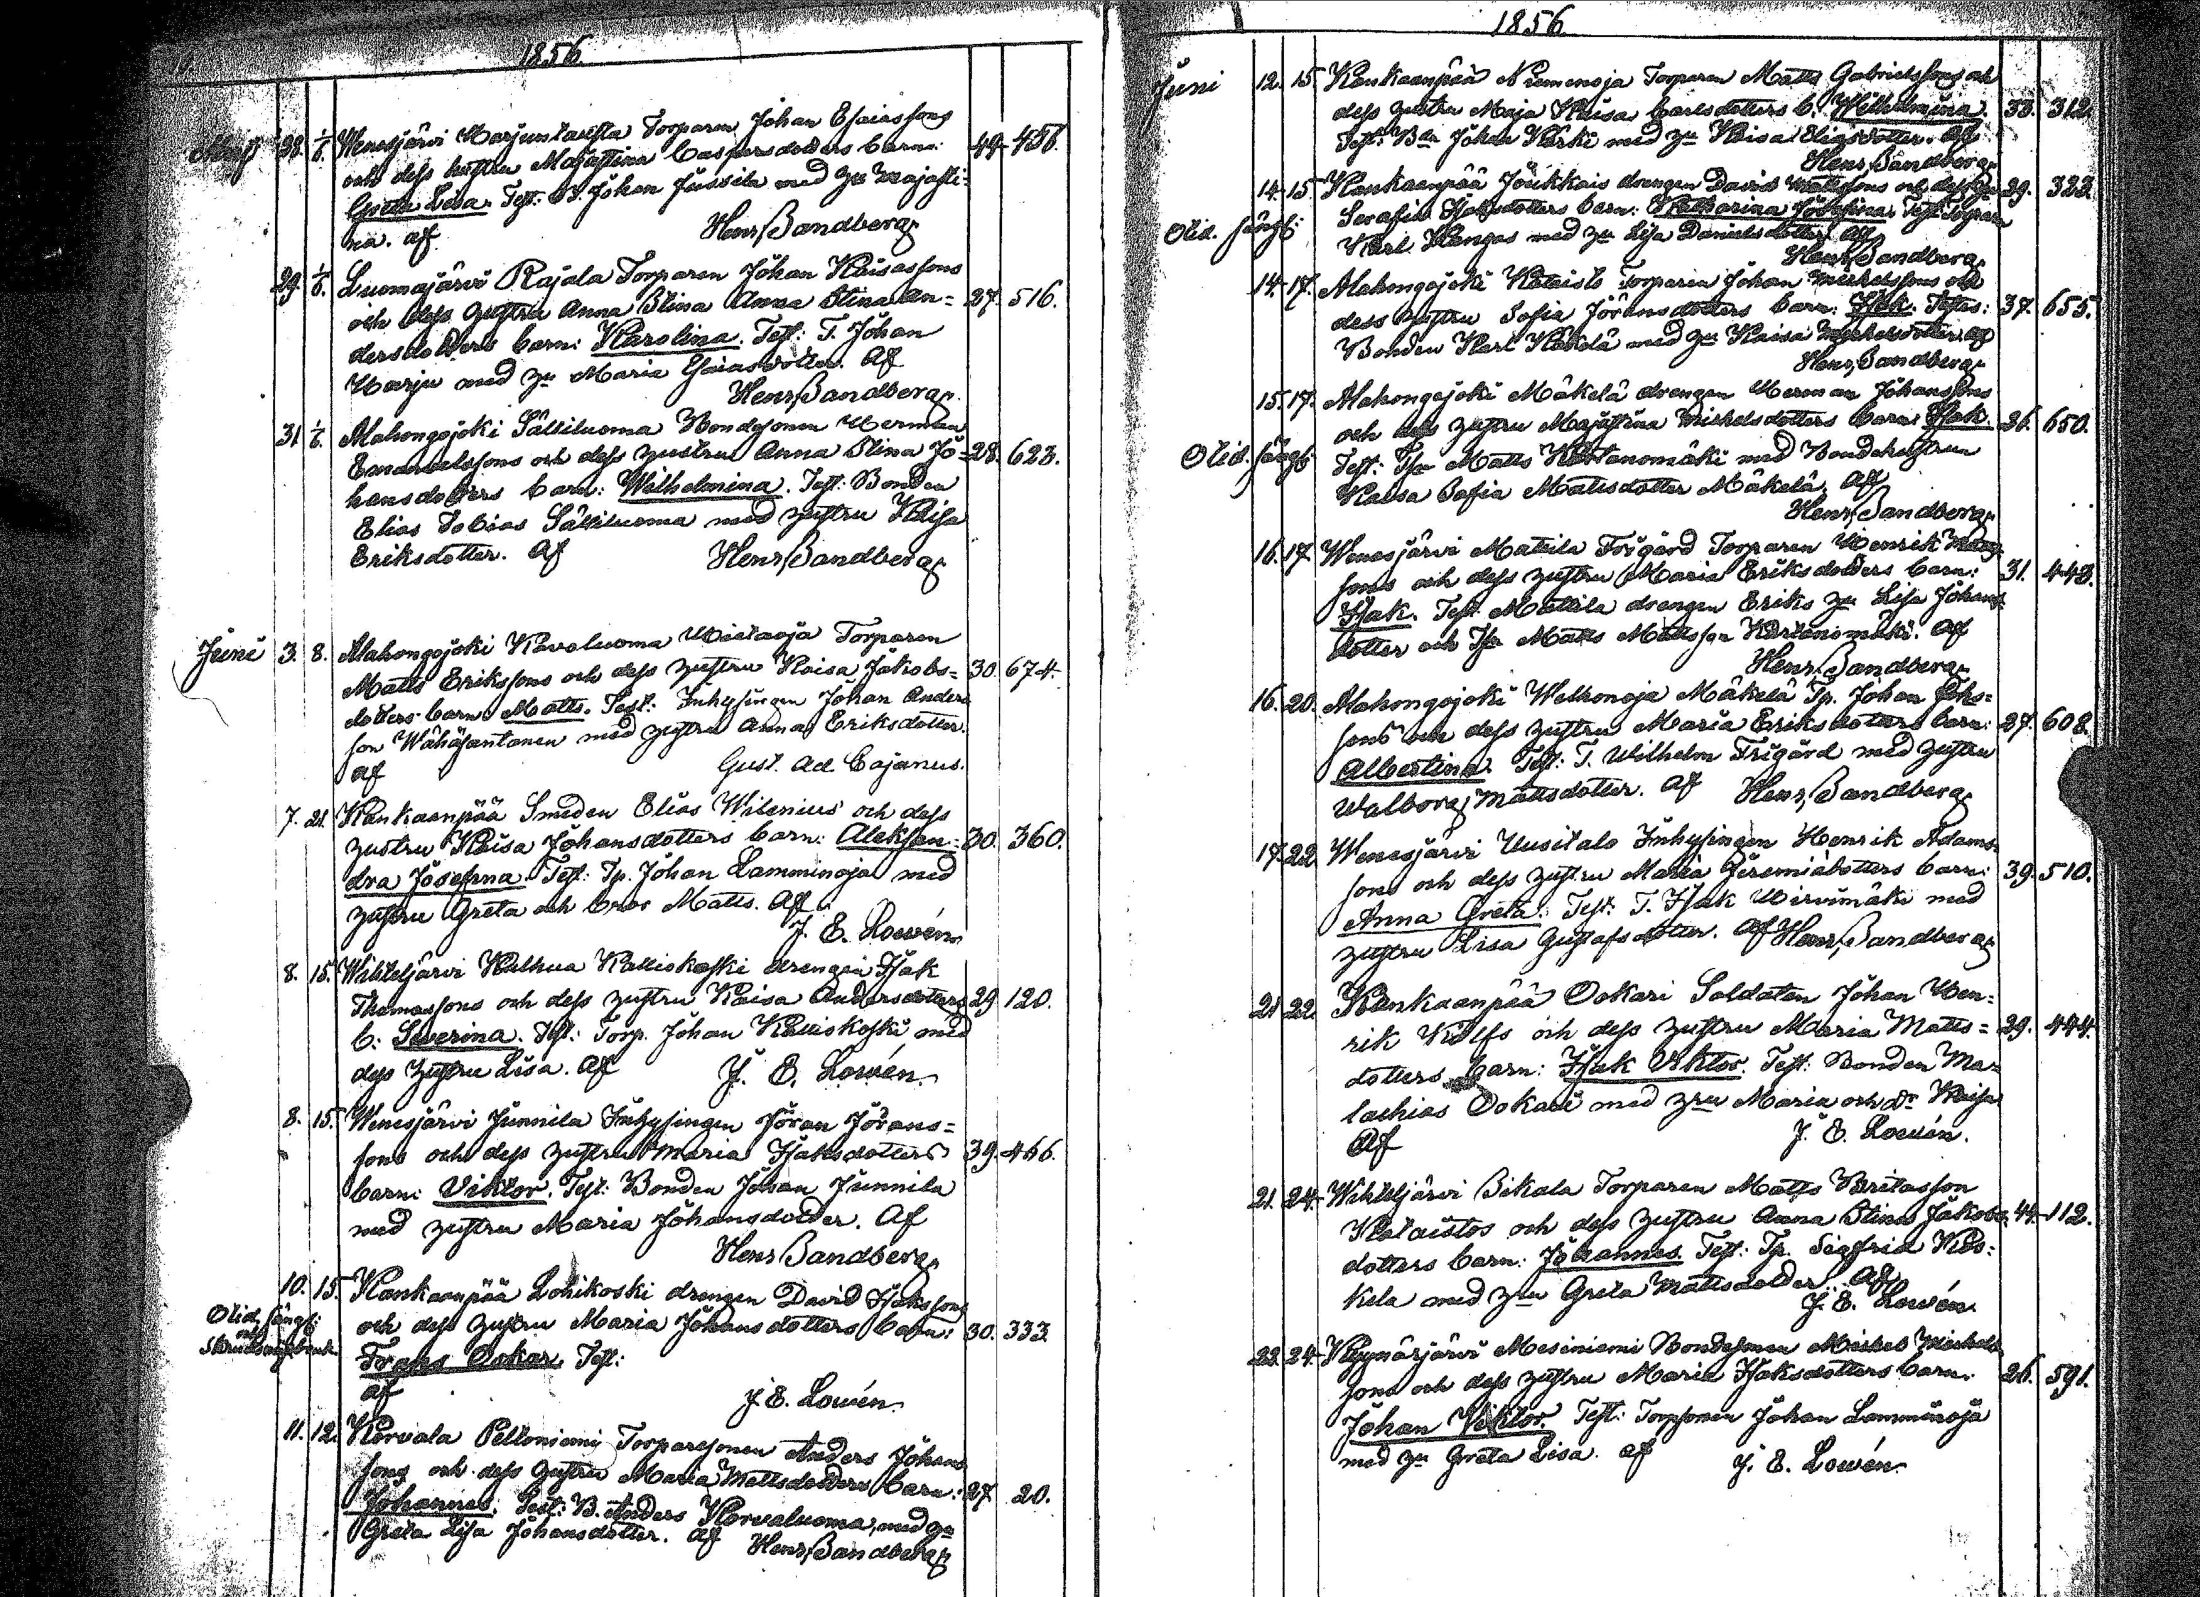 1856
28. 1/6. Wenesjärvi Torparen Johan Esaiassons
och dess hustru Majastina Caspersdotters barn: 49. 456.
Greta Lisa. Test: B. Johan Jussila med hu Majasti-
na. af Henr. Sandberg.
29. 1/6. Luomajärvi Rajala Torparen Johan Kaisassons
och dess hustru Anna Stina Anna Stina An= 27. 516.
dersdotters barn: Karolina. Test: T. Johan
Harju med hu Maria Esaiasdotter. Af
Henr. Sandberg.
31. 1/6. Alahongojoki Sälliluoma Bondesonen Herman
Emanuelssons och dess hustru Anna Stina Jo= 28. 623.
hansdotters barn: Wilhelmina. Test: Bonden
Elias Tobias Sälliluoma med hustru Kaisa
Eriksdotter. Af Henr. Sandberg.
Juni 3. 8. Alahongojoki Torparen
Matts Erikssons och dess hustru Kaisa Jakobs= 30. 674.
dotters barn: Matts. Test: Inhysingen Johan Anders
son Wähäsantanen med hustru Anna Eriksdotter.
af Gust. Ad. Cajanus.
7. 21. Kankaanpää Smeden Elias Wilenius och dess
hustru Kaisa Johansdotters barn: Aleksan= 30. 360.
dra Josefina. Test: Tp. Johan Lamminoja med
hustru Greta och bror Matts. Af
J. E. Lowén.
8. 15. Wihteljärvi Kalliokoski drengen Isak
Thomassons och dess hustru Kaisa Andersdotters 29. 120.
b: Severina. Test: Torp. Johan Kalliokoski med
dess hustru Lisa. Af J. E. Lowén.
8. 15. Wenesjärvi Junnila Inhysingen Jöran Jörans=
sons och dess hustru Maria Isaksdotters 39. 466.
barn: Viktor. Test: Bonden Johan Junnila
med hustru Maria Johansdotter. Af
Henr. Sandberg.
10. 15. Kankaanpää Lohikoski drengen David Isakssons
Olid. sängl:
och
och dess hustru Maria Johansdotters barn: 30. 333.
Frans Oskar. Test:
af J. E. Lowén.
11. 12. Korvala Peltoniemi Torparesonen Anders Johans
sons och dess hustru Maria Mattsdotters barn: 27. 20.
Johannes. Test: B. Anders Korvaluoma, med hu
Greta Lisa Johansdotter. af Henr. Sandberg.
1856
Juni 12. 15. Kankaanpää Niemenoja Torparen Matts Gabrielssons och
dess hustru Maja Kaisa Carlsdotters b. Wilhelmina. 33. 312.
Test: Bdn Johan Koski med hu Kaisa Eliasdotter. Af
Henr. Sandberg.
14. 15. Kankaanpää drengen David Mattssons och dess hu 29. 322.
Olid. sängl:
Serafia Isaksdotters barn: Katharina Josefina. Test: Torparen
Karl Kangas med hu Lisa Danielsdotter. Af
Henr. Sandberg.
14. 17. Alahongojoki Kataisto Torparen Johan Mickelssons och
dess hustru Sofia Jöransdotters barn: Isak. Testes: 37. 655.
Bonden Karl med hu Kaisa Mickelsdotter. Af
Henr. Sandberg.
15. 17. Alahongojoki Mäkelä drengen Herman Johanssons
och dess hustru Majastina Mickelsdotters barn: Isak. 26. 650.
Olid. sängl:
Test: Tsn Matts Kortanomäki med Bondehustrun
Kaisa Sofia Mattsdotter Mäkelä. Af
Henr. Sandberg.
16. 17. Wenesjärvi Mattila Frigård Torparen Henrik Matts
sons och dess hustru Maria Eriksdotters barn: 31. 443.
Isak. Test: Mattila drengen Eriks hu Lisa Johans
dotter och Tsn Matts Mattsson Kortanomäki. Af
Henr. Sandberg.
16. 20. Alahongojoki Welhonoja Mäkelä Tp. Johan Johs=
sons och dess hustru Maria Eriksdotters barn: 27. 608.
Albertina. Test: T. Wilhelm Frigård med hustru
Walborg Mattsdotter. Af Henr. Sandberg.
17. 22. Wenesjärvi Uusitalo Inhysingen Henrik Adams-
sons och dess hustru Maria Jeremiædotters barn: 39. 510.
Anna Greta. Test: T. Isak Hirvimäki med
hustru Lisa Gustafsdotter. Af Henr. Sandberg.
21. 22. Kankaanpää Ookari Soldaten Johan Hen=
rik Kolfs och dess hustru Maria Matts= 29. 444.
dotters barn: Isak Viktor. Test: Bonden Ma=
lachias Ookari med hru Maria och Dr Kaisa
Af J. E. Lowén.
21. 24. Wihteljärvi Sikala Torparen Matts Britasson
Kataistos och dess hustru Anna Stina Jakobs 44. 112.
dotters barn: Johannes. Test: Tp. Sigfrid Kos=
kela med hru Greta Mattsdotter. Af
J. E. Lowén.
22. 24. Kyynärjärvi Mesiniemi Bondesonen Mickel Mickels
sons och dess hustru Maria Isaksdotters barn: 26. 591.
Johan Viktor. Test: Torpsonen Johan Lamminoja
med hu Greta Lisa. af J. E. Lowén.